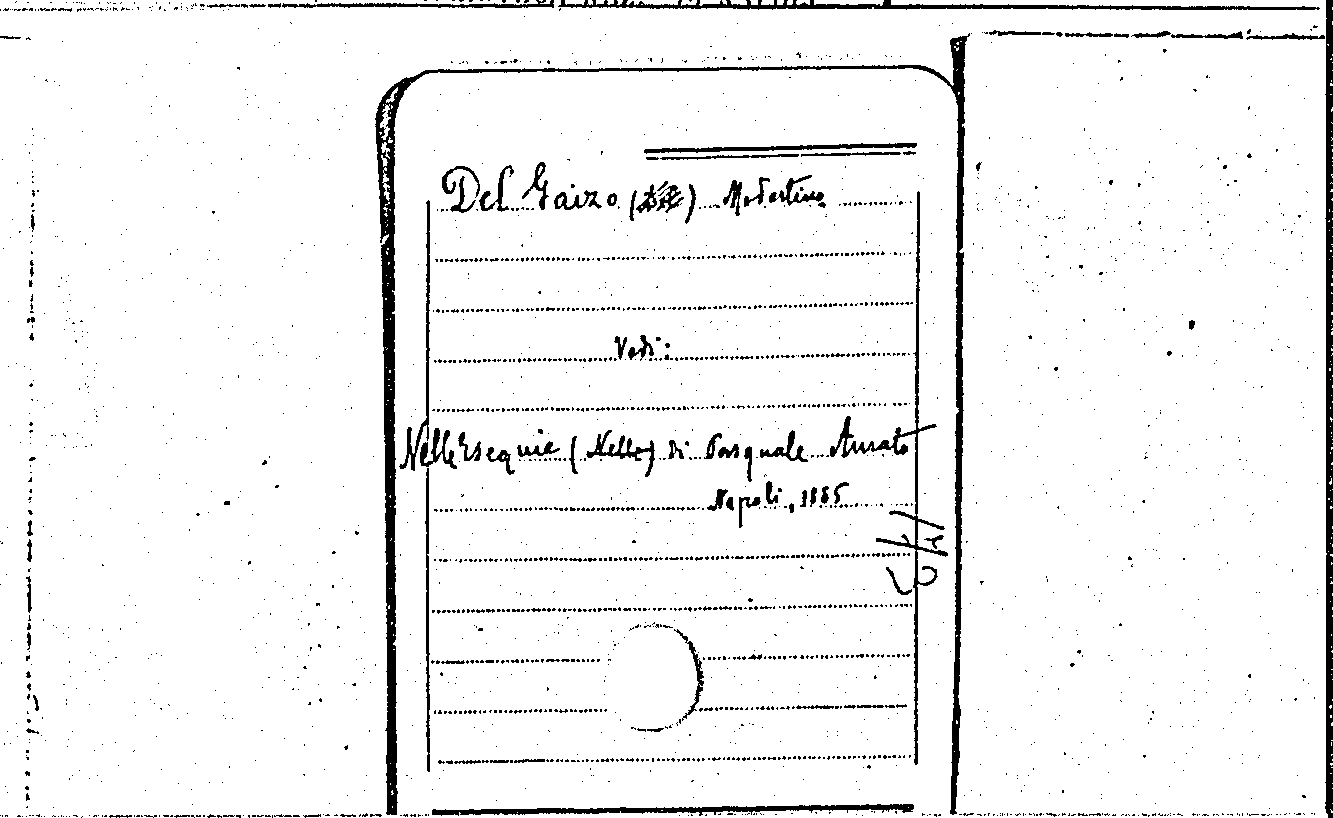 Del Gaizo ( ) Modestino
Vedi:
Nelle Esequie (Nelle) di Pasquale Amato
Napoli, 1885